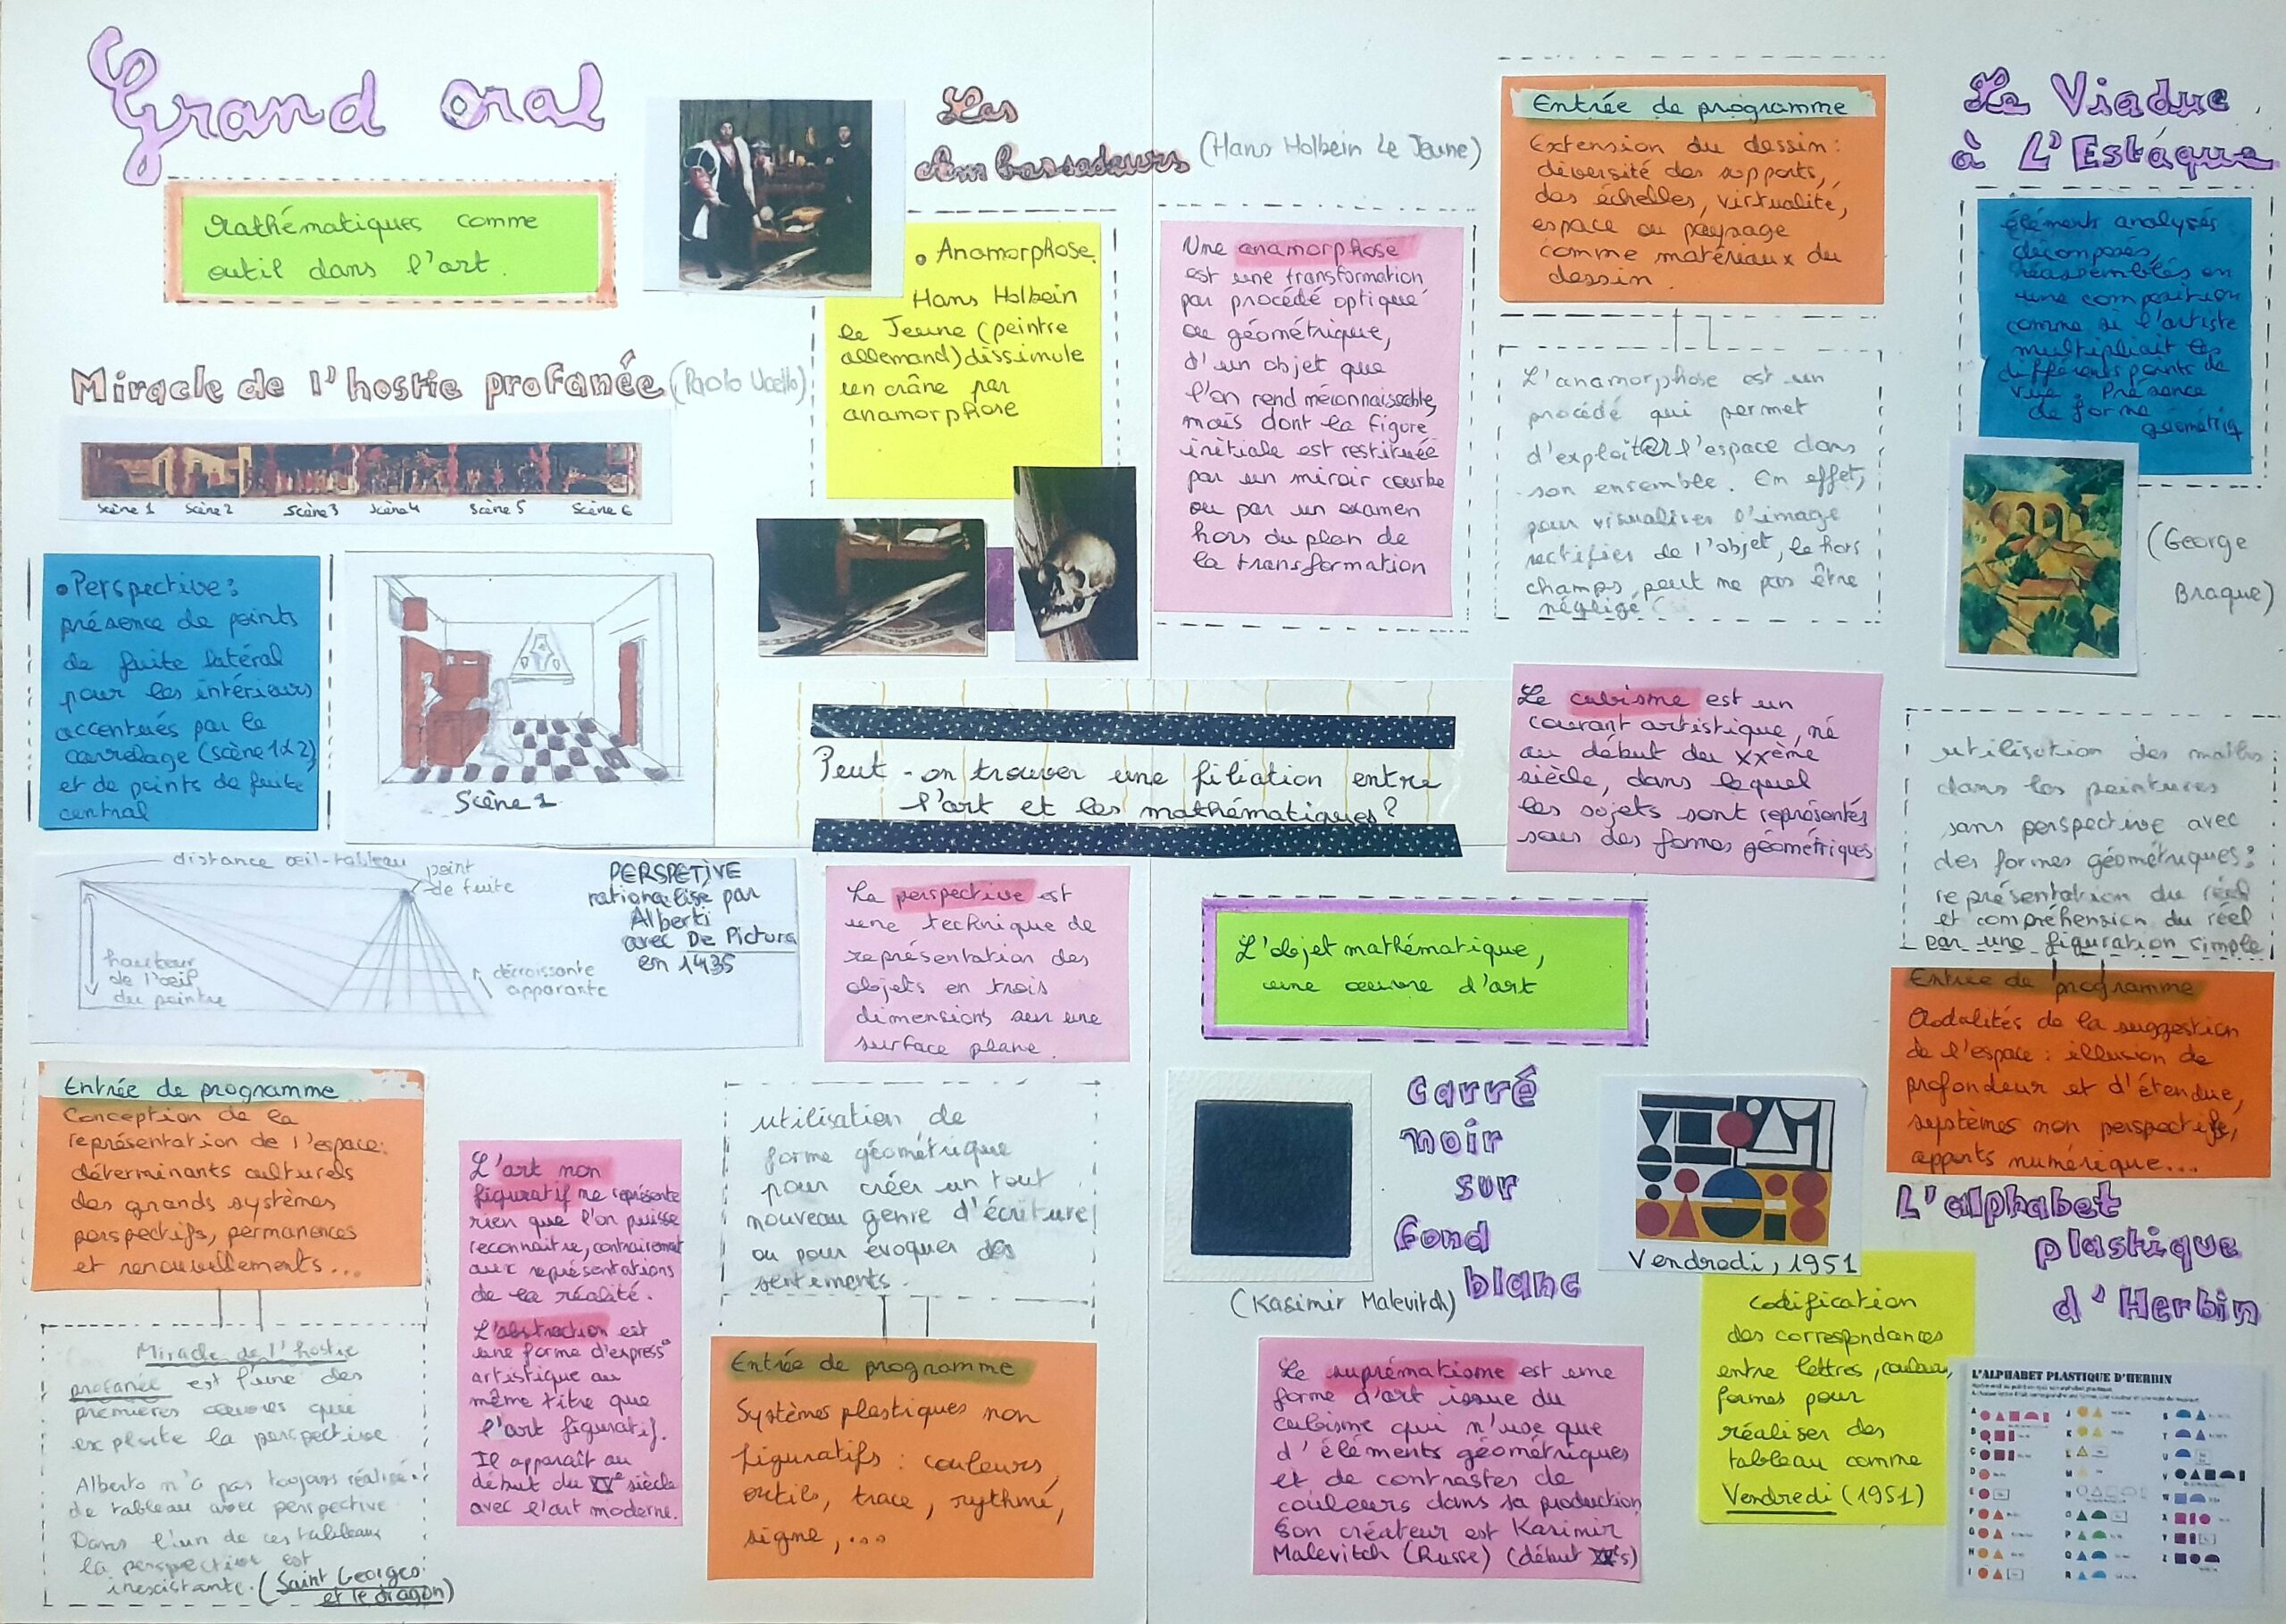 Grand oral
Mathématiques comme
outil dans l'art.
Miracle de l'hostie profanée (Paolo Ucello)
Scène 1 Scène 2 Scène 3 Scène 4 Scène 5 Scène 6
• Perspective :
présence de points
de fuite latéral
pour les intérieurs
accentués par le
carrelage (scène 1&2)
et de points de fuite
central
Scène 1
distance œil-tableau
point
de fuite
hauteur
de l'œil
du peintre
décroissante
apparante
PERSPETIVE
rationalisé par
Alberti
avec De Pictura
en 1435
Entrée de programme
Conception de la
représentation de l'espace:
déterminants culturels
des grands systèmes
perspectifs, permanences
et renouvellements...
Miracle de l'hostie
profanée est l'une des
premières œuvres qui
exploite la perspective
Alberto n'a pas toujours réalisé
de tableau avec perspective
Dans l'un de ces tableaux
la perspective est
inexistante. (Saint Georges
et le dragon)
Les
Ambassadeurs (Hans Holbein Le Jeune)
• Anamorphose.
Hans Holbein
le Jeune (peintre
allemand) dissimule
un crâne par
anamorphose
Une anamorphose
est une transformation
par procédé optique
ou géométrique,
d'un objet que
l'on rend méconnaissable,
mais dont la figure
initiale est restituée
par un miroir courbe
ou par un examen
hors du plan de
la transformation
Entrée de programme
Extension du dessin:
diversité des supports,
des échelles, virtualité,
espace ou paysage
comme matériaux du
dessin.
L'anamorphose est un
procédé qui permet
d'exploiter l'espace dans
son ensemble. En effet,
pour visualiser l'image
rectifiée de l'objet, le hors
champs peut ne pas être
négligé
Peut-on trouver une filiation entre
l'art et les mathématiques?
La perspective est
une technique de
représentation des
objets en trois
dimensions sur une
surface plane.
L'art non
figuratif ne représente
rien que l'on puisse
reconnaitre, contrairement
aux représentations
de la réalité.
L'abstraction est
une forme d'express°
artistique au
même titre que
l'art figuratif.
Il apparaît au
début du siècle
avec l'art moderne.
utilisation de
forme géométrique
pour créer un tout
nouveau genre d'écriture
ou pour évoquer des
sentiments.
Entrée de programme
Systèmes plastiques non
figuratifs : couleurs,
outils, trace, rythme,
signe,...
Le Viaduc
à L'Estaque
éléments analysés
décomposés,
réassemblés en
une composition
comme si l'artiste
multipliait les
différents points de
vue. Présence
de forme
géométriq
(George
Braque)
Le cubisme est un
courant artistique, né
au début du XXème
siècle, dans lequel
les sujets sont représentés
sous des formes géométriques
utilisation des maths
dans les peintures
sans perspective avec
des formes géométriques:
représentation du réel
et compréhension du réel
par une figuration simple
Entrée de programme
Modalités de la suggestion
de l'espace : illusion de
profondeur et d'étendue,
systèmes non perspectifs,
apports numérique...
L'objet mathématique,
une œuvre d'art
Carré
noir
sur
fond
blanc
(Kasimir Malevitch)
Le suprématisme est une
forme d'art issue du
cubisme qui n'use que
d'éléments géométriques
et de contrastes de
couleurs dans sa production
Son créateur est Kasimir
Malevitch (Russe) (début s)
Vendredi, 1951
L'alphabet
plastique
d'Herbin
Codification
des correspondances
entre lettres, couleurs,
formes pour
réaliser des
tableau comme
Vendredi (1951)
L'ALPHABET PLASTIQUE D'HERBIN